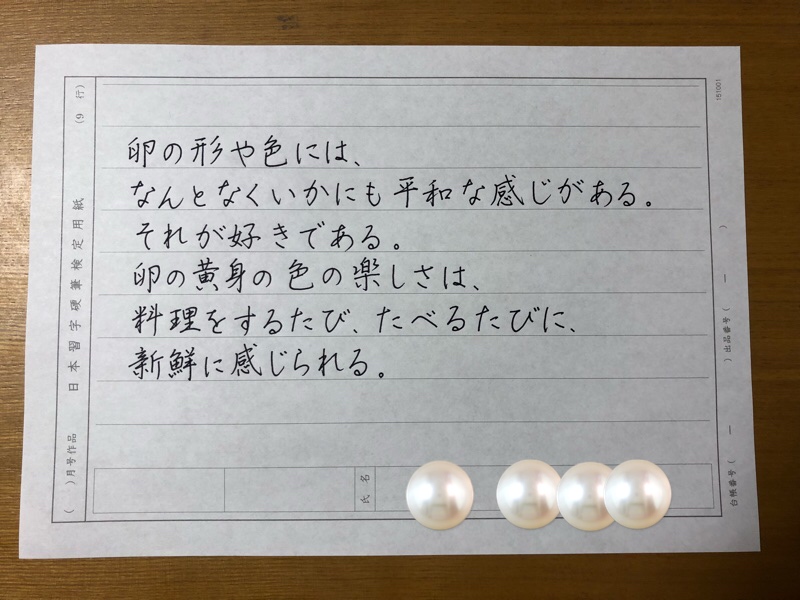 卵の形や色には、
なんとなくいかにも平和な感じがある。
それが好きである。
卵の黄身の色の楽しさは、
料理をするたび、たべるたびに、
新鮮に感じられる。
(9 行)
日本習字硬筆検定用紙
( )月号作品
氏名
151001
)出品番号( ー )
台帳番号( ー